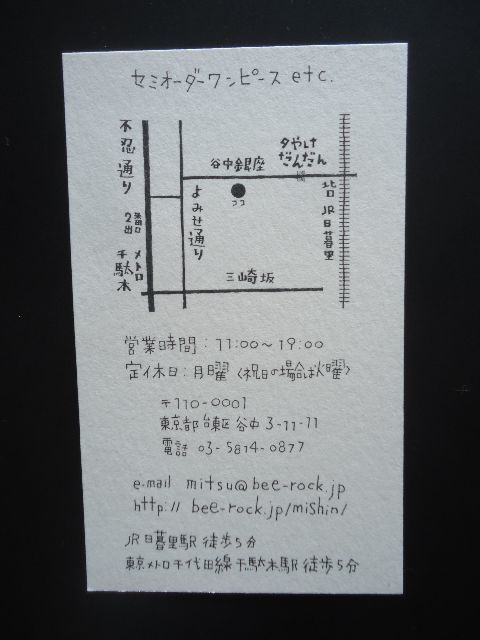 セミオーダーワンピース etc.
不忍通り
夕やけ
だんだん
谷中銀座
ココ
よみせ通り
北口
JR日暮里
2番出口
メトロ
千駄木
三崎坂
営業時間：11:00〜19:00
定休日：月曜〈祝日の場合は火曜〉
〒110-0001
東京都台東区谷中3-11-11
電話 03-5814-0877
e.mail mitsu@bee-rock.jp
http:// bee-rock.jp/mishin/
JR日暮里駅 徒歩5分
東京メトロ千代田線千駄木駅 徒歩5分